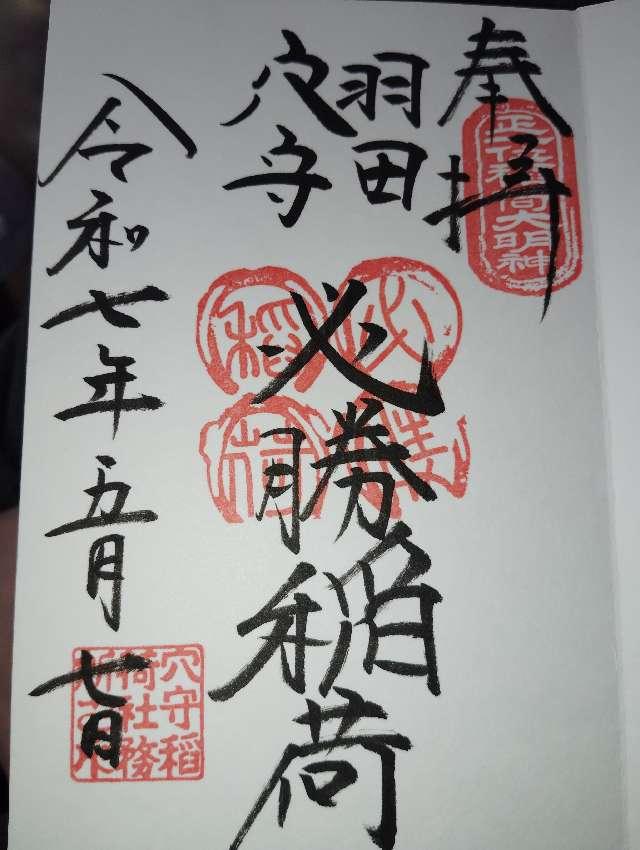 奉拝
正一位稲荷大明神
羽田
穴守
必勝稲荷
必勝
稲荷
令和七年五月七日
穴守稲
荷社務
所